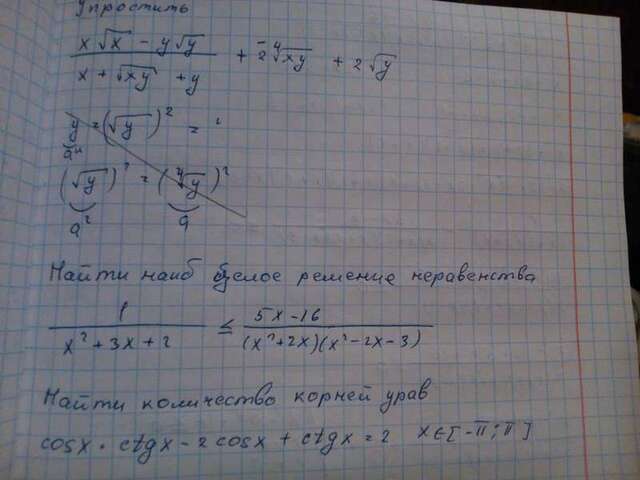 Упростить
x√x - y√y / x + √xy + y + -2 ⁴√xy + 2√y
y = (√y)² =
a⁴
(√y)² = (⁴√y)²
a² a
Найти наиб целое решение неравенства
1 / x² + 3x + 2 ≤ 5x - 16 / (x² + 2x)(x² - 2x - 3)
Найти количество корней урав
cosx · ctgx - 2cosx + ctgx = 2 x∈[-π; π]